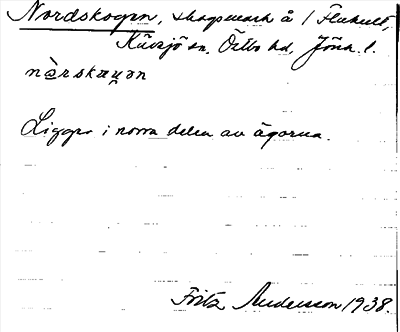 Nordskogen, skogsmark å 1 Flukult,
Kävsjö sn, Östbo hd, Jönk. l.
nὰrskaųən
Ligger i norra delen av ägorna.
Fritz Andersson 1938.